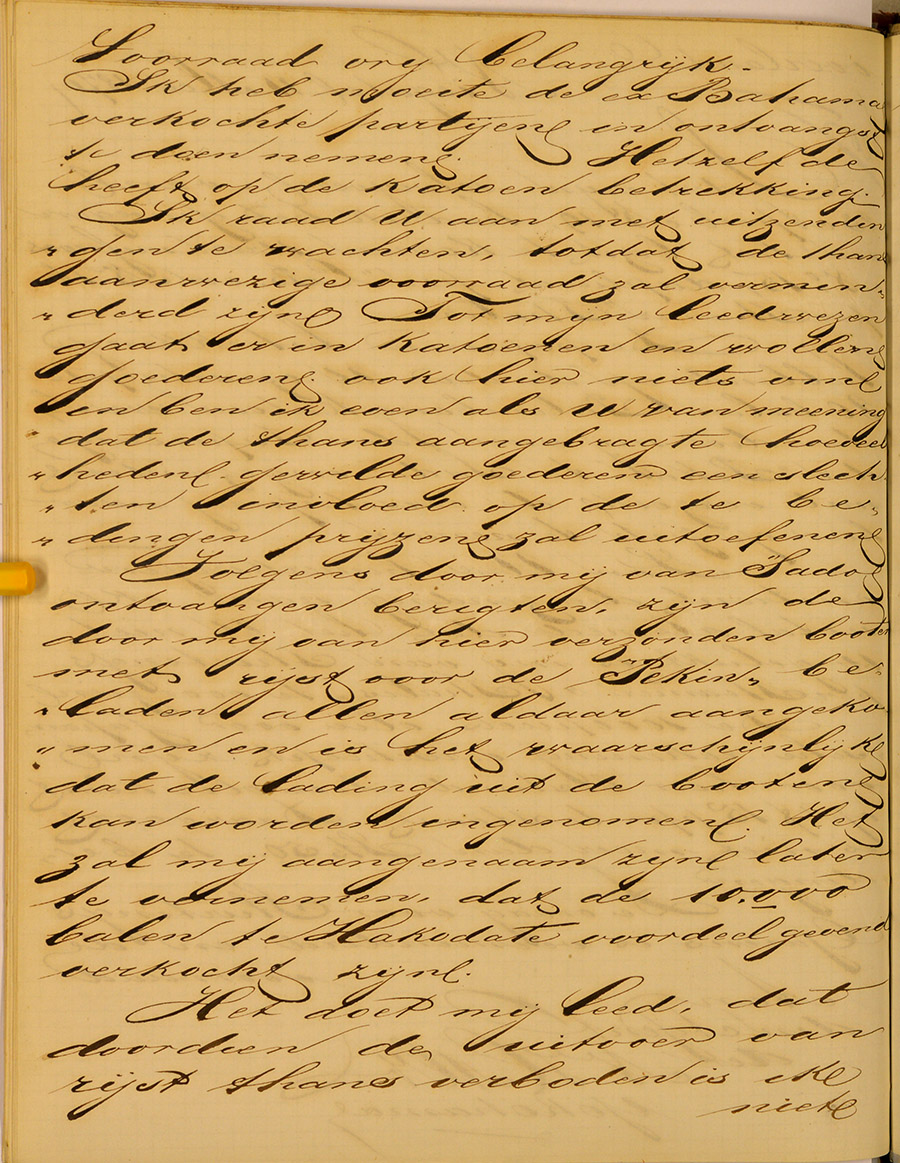 voorraad vry belangrijk.
Ik heb moeite de ex Bahama
verkochte partijen in ontvangst
te doen nemen. Hetzelfde
heeft op de katoen betrekking.
Ik raad U aan met uitzenden
„gen te wachten, totdat de thans
aanwezige voorraad zal vermin„
„derd zijn. Tot mijn leedwezen
gaat er in katoenen en wollen
goederen ook hier niets om
en ben ik even als U van meening
dat de thans aangebragte hoeveel
„heden gewilde goederen een slech„
„ten invloed op de te be„
„dingen prijzen zal uitoefenen
Volgens door mij van Sado
ontvangen berigten, zijn de
door mij van hier verzonden booten
met rijst voor de "Pekin" be„
„laden allen aldaar aangeko„
„men en is het waarschijnlijk
dat de lading uit de booten
kan worden ingenomen. Het
zal mij aangenaam zijn later
te vernemen, dat de 10.000
balen te Hakodate voordeelgevend
verkocht zijn.
Het doet mij leed, dat
doordien de uitvoer van
rijst thans verboden is ik
niet